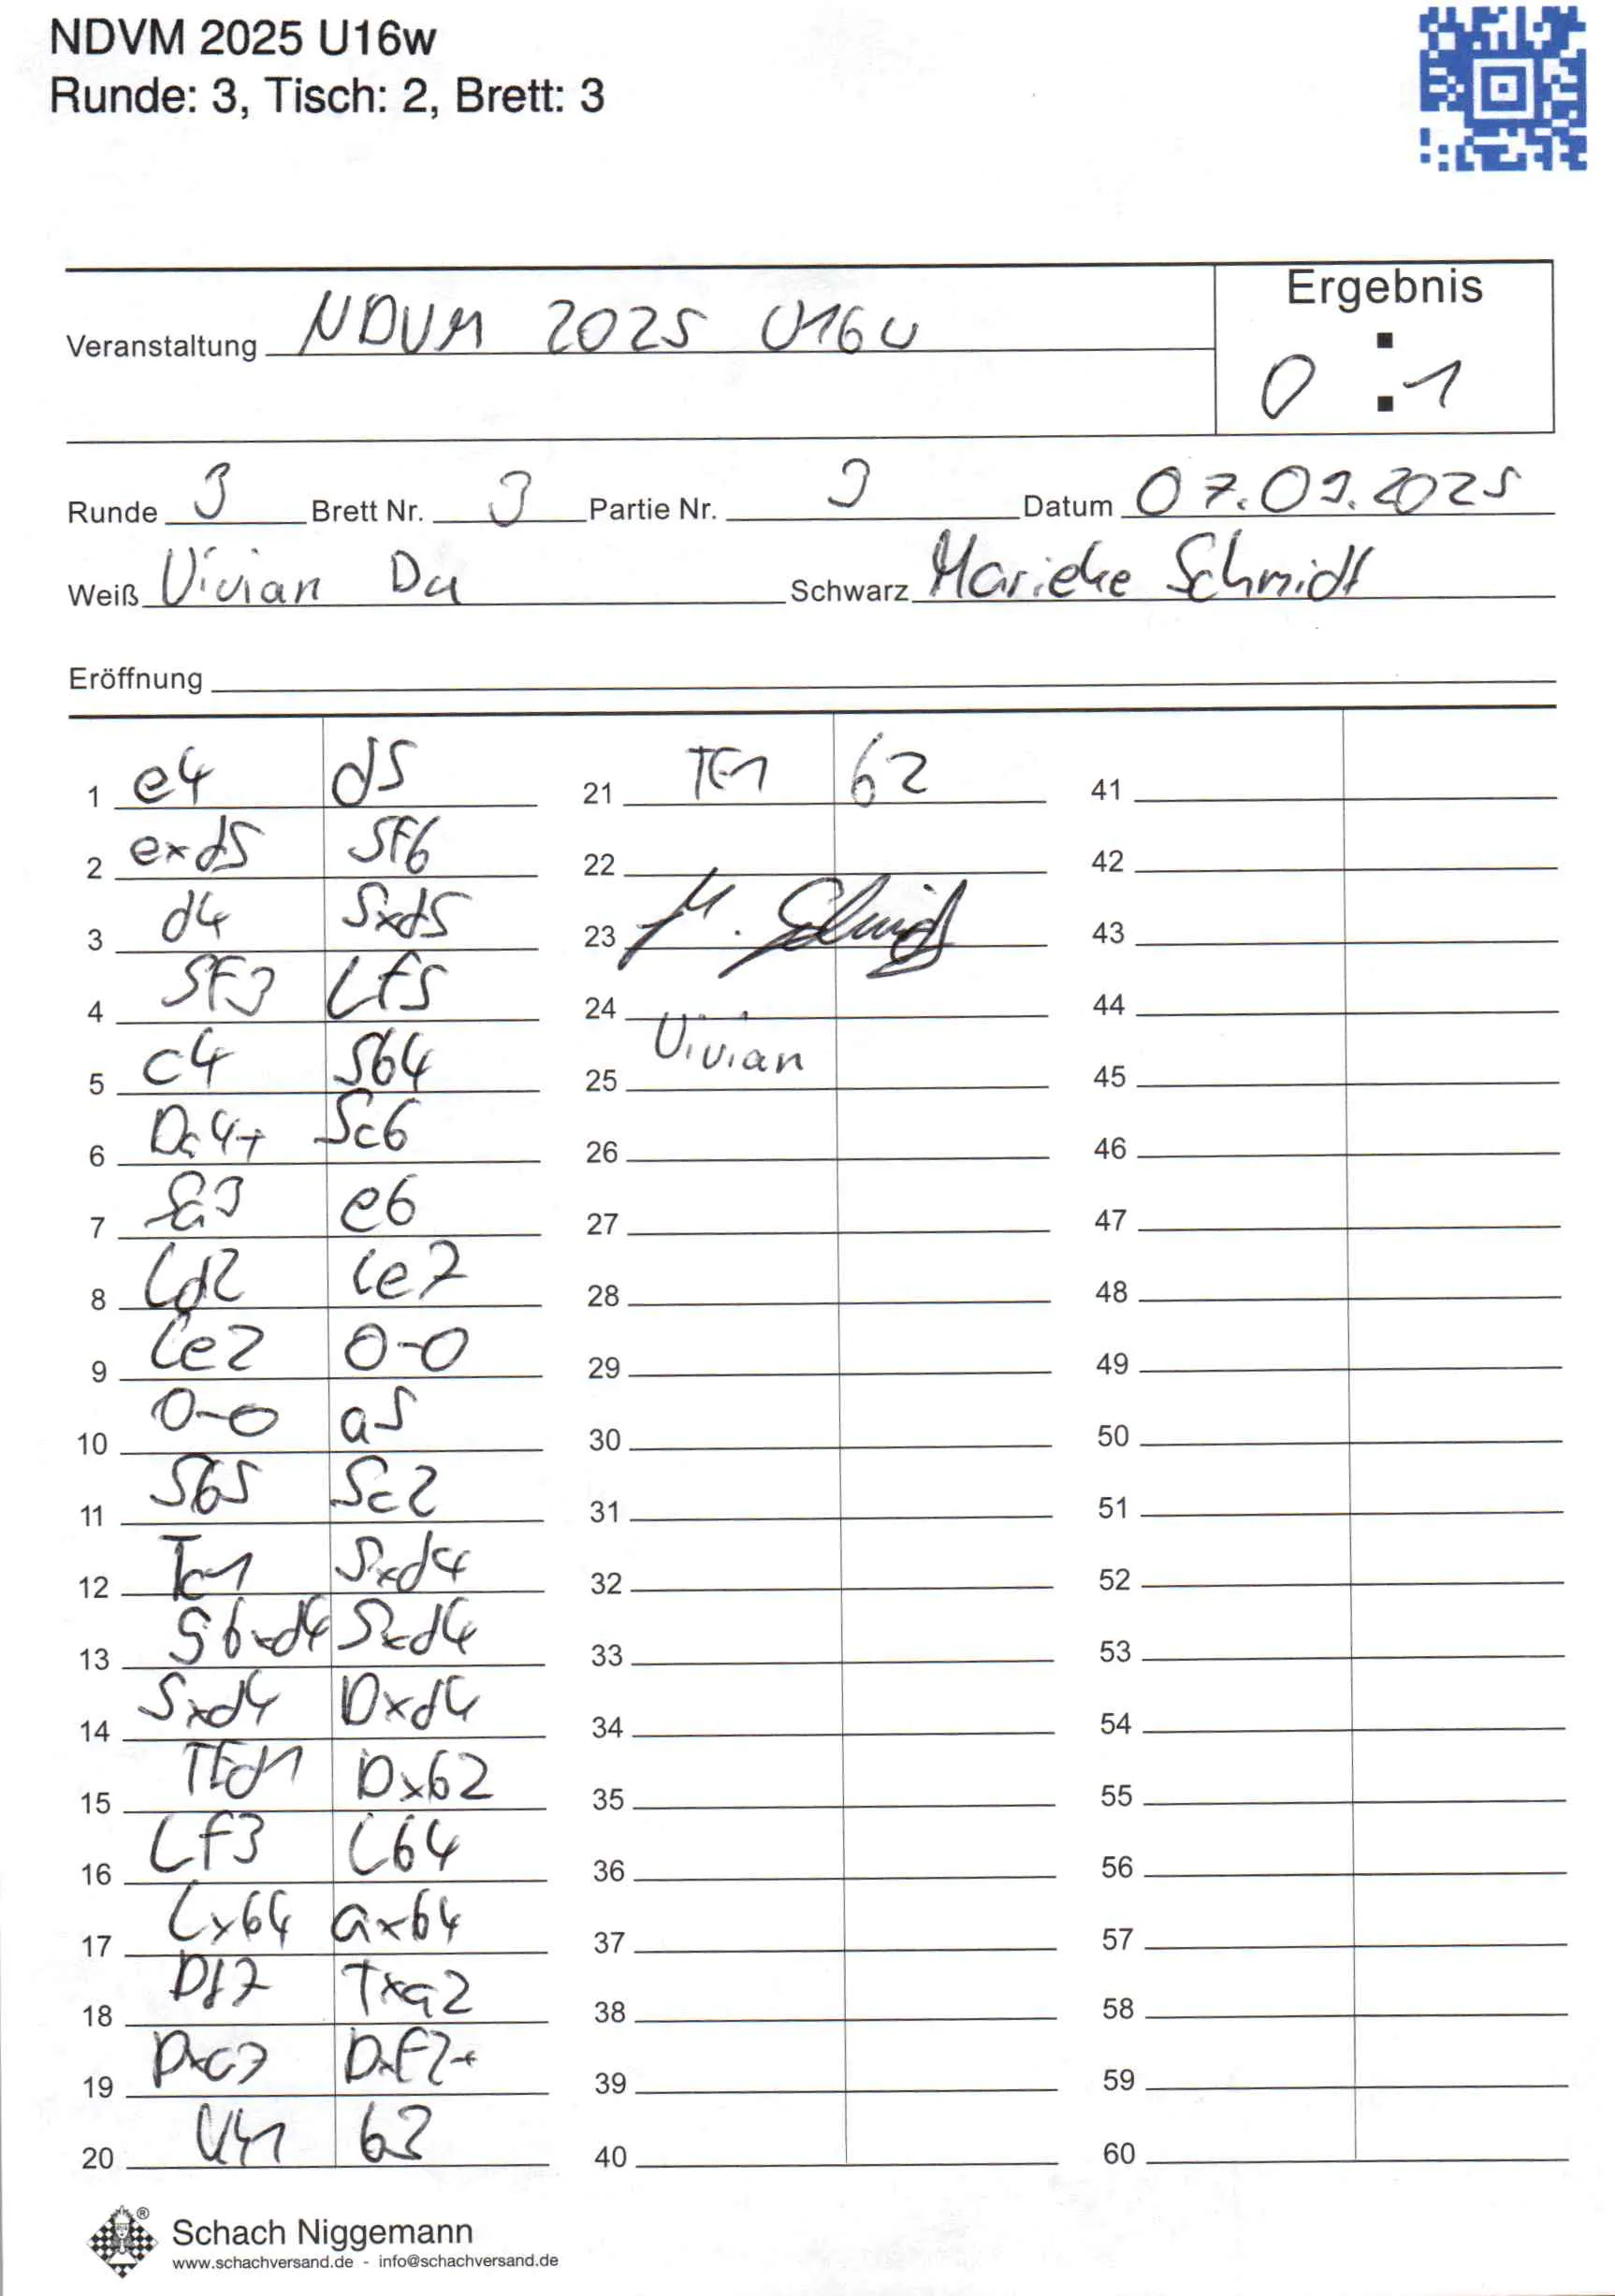 NDVM 2025 U16w
Runde: 3, Tisch: 2, Brett: 3
Ergebnis
Veranstaltung NDVM 2025 U16w
0 : 1
Runde 3 Brett Nr. 3 Partie Nr. 3 Datum 07.09.2025
Weiß Vivian Du Schwarz Marieke Schmidt
Eröffnung
1 e4 d5 21 TF1 b2 41
2 exd5 SF6 22 42
3 d4 Sxd5 23 M. Schmidt 43
4 SF3 Lf5 24 44
5 c4 Sb4 25 Vivian 45
6 Da4+ Sc6 26 46
7 Sa3 e6 27 47
8 Ld2 Le7 28 48
9 Le2 0-0 29 49
10 0-0 a5 30 50
11 Sb5 Sc2 31 51
12 Tc1 Sxd4 32 52
13 Sbxd4 Sxd4 33 53
14 Sxd4 Dxd4 34 54
15 TFd1 Dxb2 35 55
16 LF3 Lb4 36 56
17 Lxb4 axb4 37 57
18 Dd7 Txa2 38 58
19 Dxc7 DxF2+ 39 59
20 Kh1 b3 40 60
Schach Niggemann
www.schachversand.de - info@schachversand.de